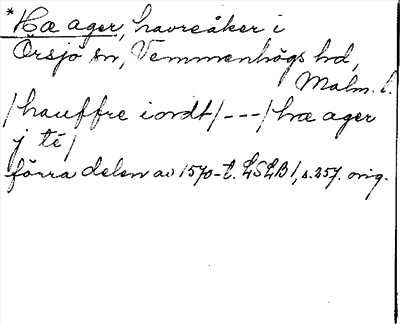 * Hæ ager, havreåker i
Örsjö sn, Vemmenhögs hd,
Malm. l.
/hauffre iordt/---/hæ ager
j té/
förra delen av 1570-t. LSLB 1, s. 257. orig.